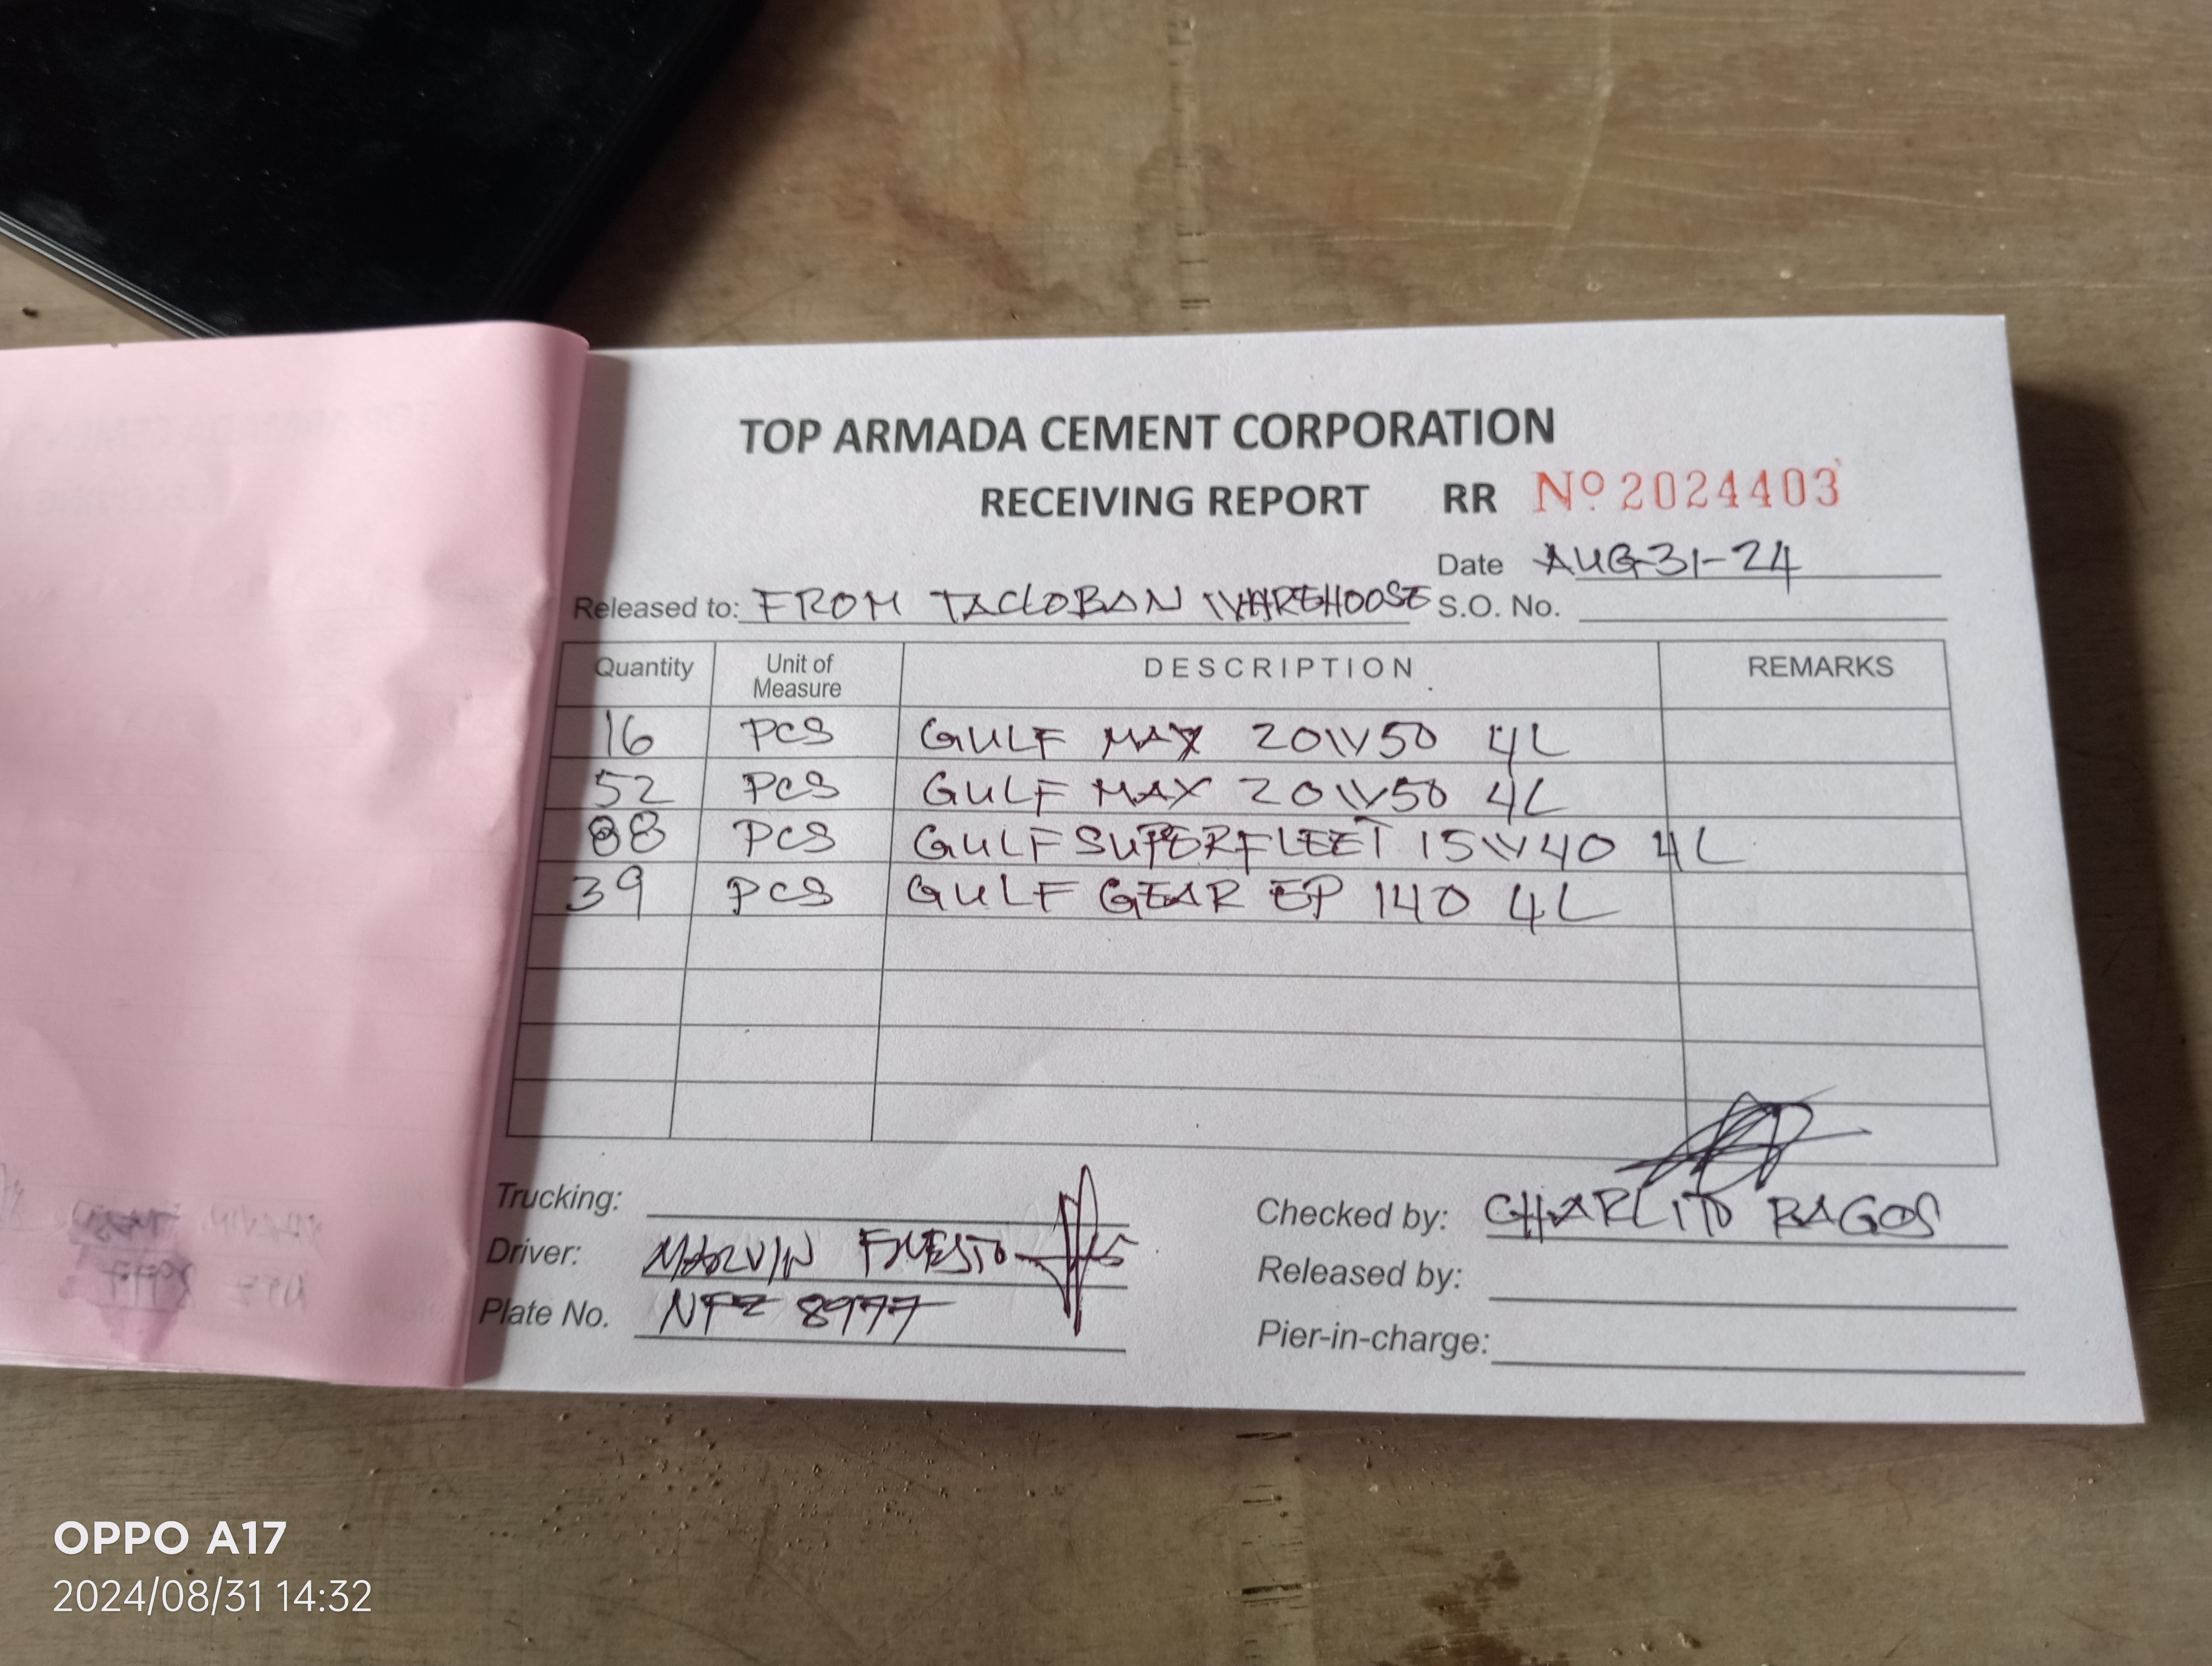 TOP ARMADA CEMENT CORPORATION
RECEIVING REPORT RR Nº 2024403
Date AUG-31-24
Released to: FROM TACLOBAN WAREHOOSE S.O. No.
Quantity Unit of Measure DESCRIPTION REMARKS
16 PCS GULF MAX 20W50 4L
52 PCS GULF MAX 20W50 4L
88 PCS GULF SUPERFLEET 15W40 4L
39 PCS GULF GEAR EP 140 4L
Trucking:
Checked by: CHARLITO RAGOS
Driver: MARVIN
Released by:
Plate No. NFZ 8977
Pier-in-charge:
OPPO A17
2024/08/31 14:32